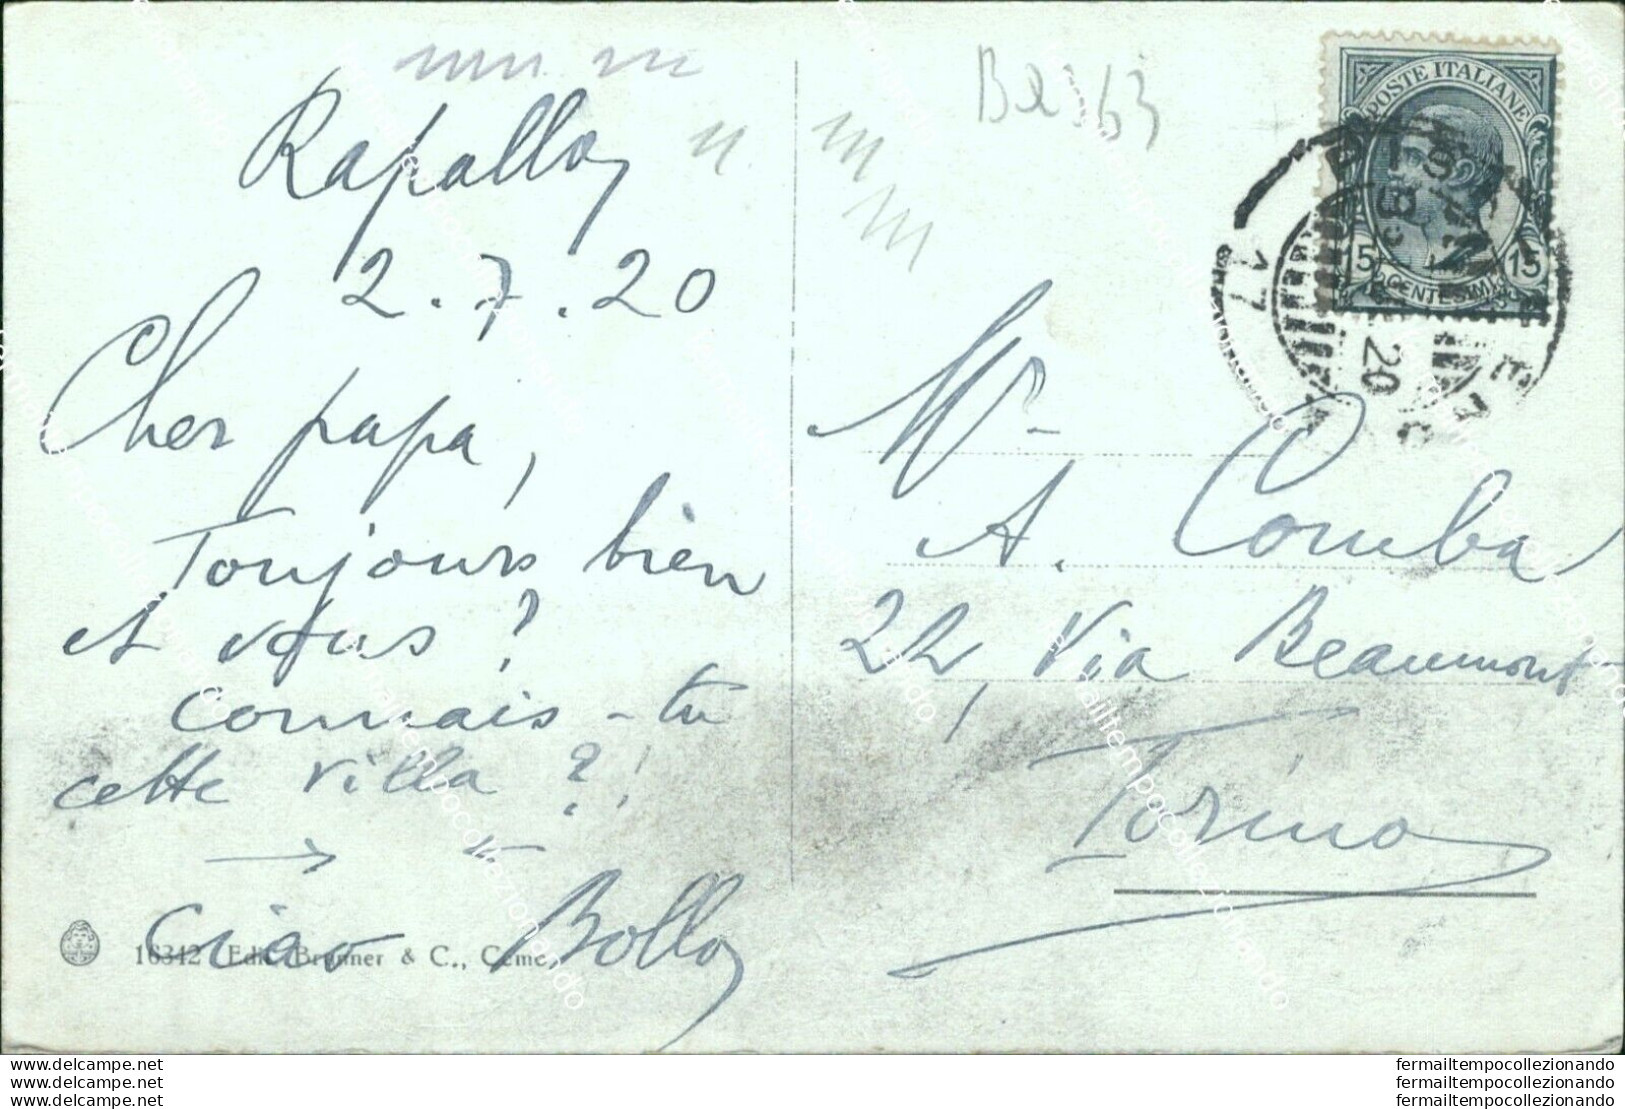 Rapallo,
2.7.20
Cher papa,
Toujours bien
et vous?
connais-tu
cette villa?!
Ciao Bollo
16342 Edit. Brunner & C., Como
POSTE ITALIANE
15 15
CENTESIMI
17
20
Mr
A. Comba
22, Via Beaumont
Torino
fermailtempocollezionando
fermailtempocollezionando
fermailtempocollezionando
delcampe.net
delcampe.net
delcampe.net